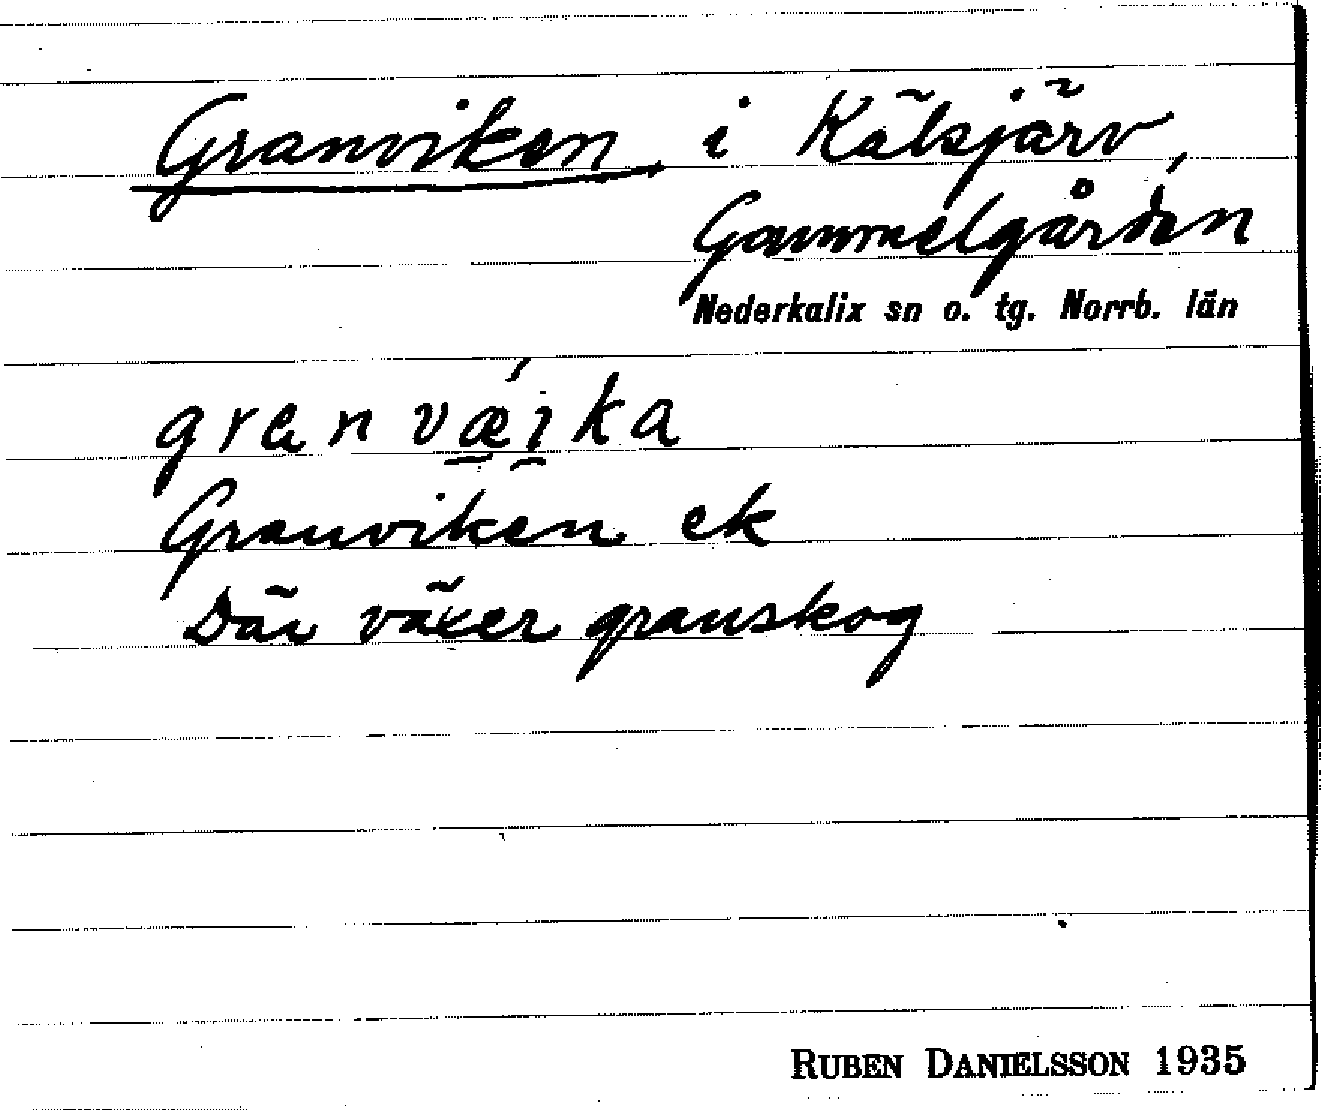 Granviken i Kälsjärv,
Gammelgården
Nederkalix sn o. tg. Norrb. län
granvǽika
Granviken ek
Där växer granskog
RUBEN DANIELSSON 1935